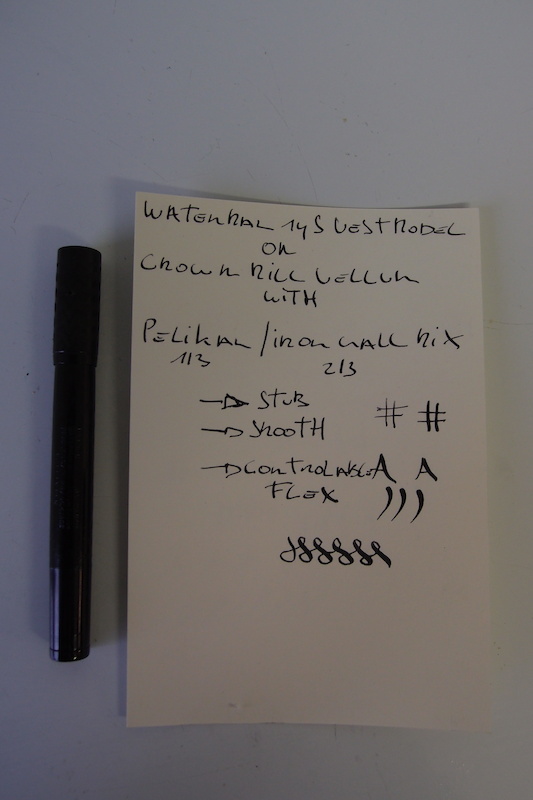 WATERMAN 14S VEST MODEL
ON
CROWN MILL VELLUM
WITH
PELIKAN / IRON GALL MIX
1/3 2/3
→ STUB # #
→ SMOOTH
→ CONTROLABLE A A
FLEX